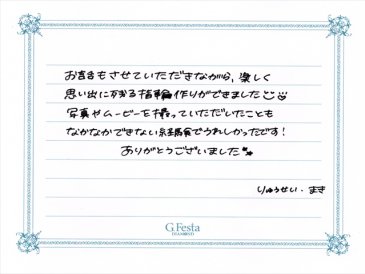 お話もさせていただきながら、楽しく
思い出に残る指輪作りができました☺☺
写真やムービーを撮っていただいたことも
なかなかできない経験でうれしかったです！
ありがとうございました
りゅうせい・まき
G.Festa
DIAMOND